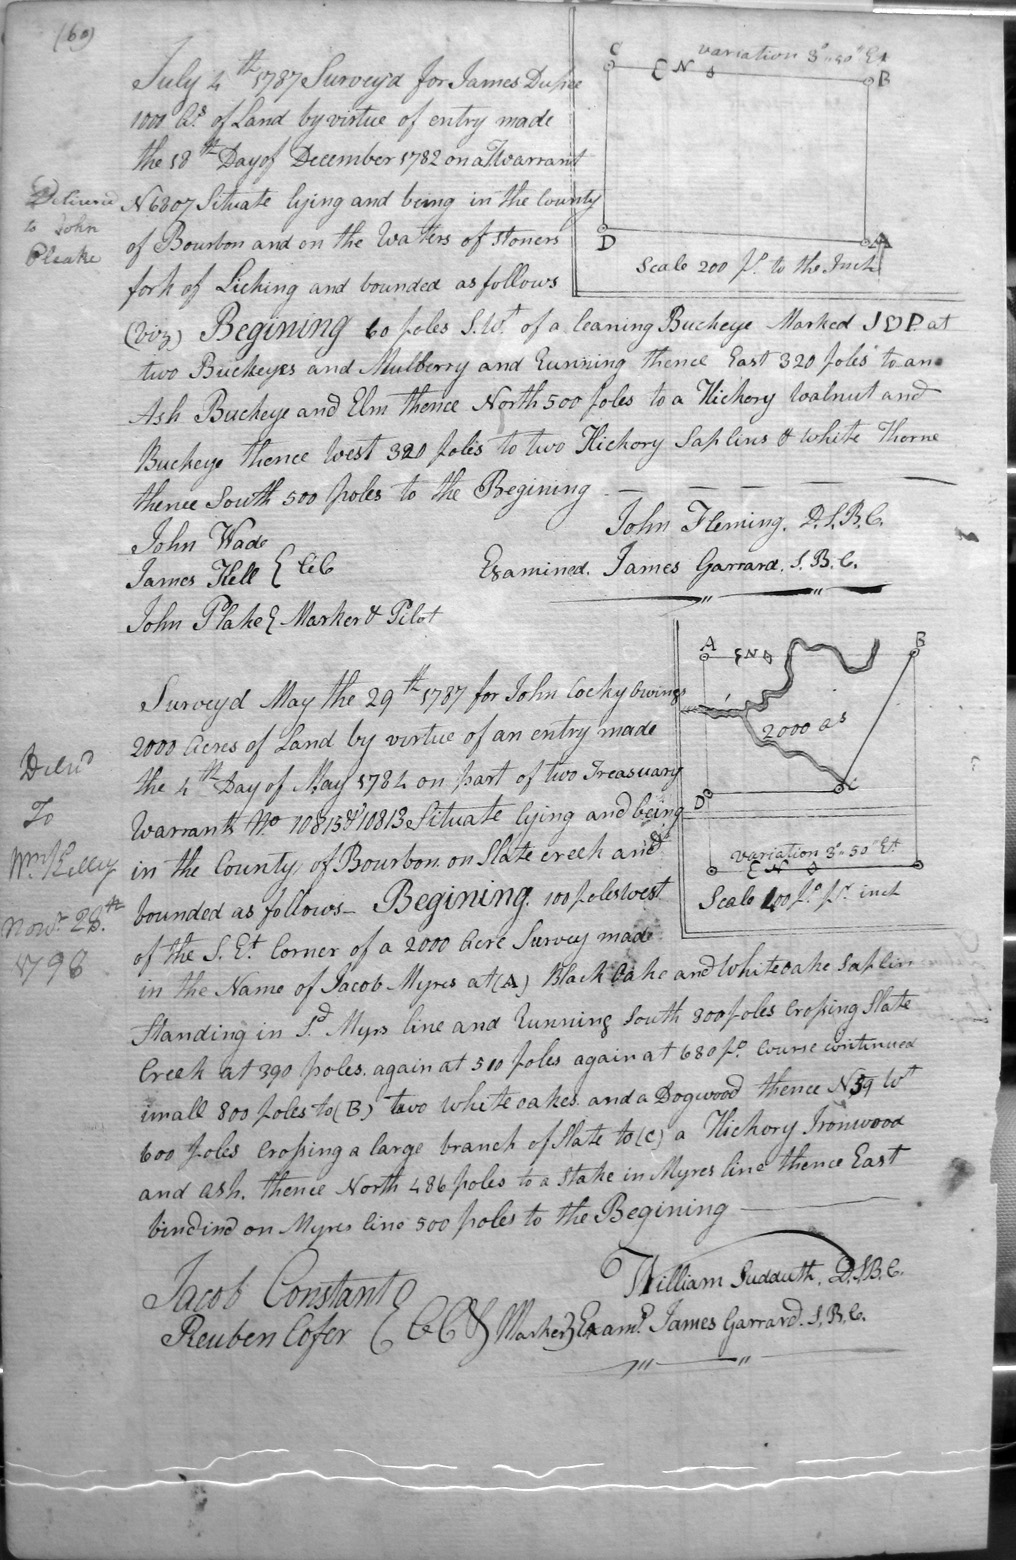 (60)
July 4th 1787 Surveyd for James Dupee
1000 As. of Land by virtue of entry made
the 18th Day of December 1782 on a Warrant
N 6807 Situate lying and being in the County
of Bourbon and on the Waters of Stoners
fork of Licking and bounded as follows
(viz) Begining 60 poles S.Wt. of a leaning Buckeye Marked J D P at
two Buckeyes and Mulberry and Running thence East 320 poles to an
Ash Buckeye and Elm thence North 500 poles to a Hickory Walnut and
Buckeye thence West 320 poles to two Hickory Saplins & White Thorne
thence South 500 poles to the Begining
John Fleming. D.S.B.C.
John Wade
James Hell } CC
Examined. James Garrard. S.B.C.
John Plake } Marker & Pilot
Delivered
to John
Pleake
C
variation 3°..50" Et
N
B
D
A
Scale 200 Ps. to the Inch
Surveyd May the 29th 1787 for John Cocky Owings
2000 Acres of Land by virtue of an entry made
the 4th Day of May 1782 on part of two Treasuary
Warrants No 10815 & 10813 Situate lying and being
in the County of Bourbon on Slate creek and
bounded as follows Begining 100 poles West
of the S. Et. Corner of a 2000 Acre Survey made
in the Name of Jacob Myres at (A) Black Oake and White oake Saplin
Standing in Sd. Myrs line and Running South 800 poles Crossing Slate
Creek at 390 poles. again at 510 poles again at 680 po. Course continued
in all 800 poles to (B) two White oakes and a Dogwood thence N 39 Wt
600 poles Crossing a large branch of Slate to (C) a Hickory Ironwood
and Ash. thence North 486 poles to a Stake in Myres line thence East
bindind on Myres line 500 poles to the Begining
William Sudduth. D.S.B.C.
Jacob Constant
Reuben Cofer } CC & Marker } Examd. James Garrard. S.B.C.
Delivd
To
Wm Kelley
Novr. 28th
1798
A
N
B
2000 as
D
C
variation 3°..50" Et
N
Scale 200 po. pr. inch